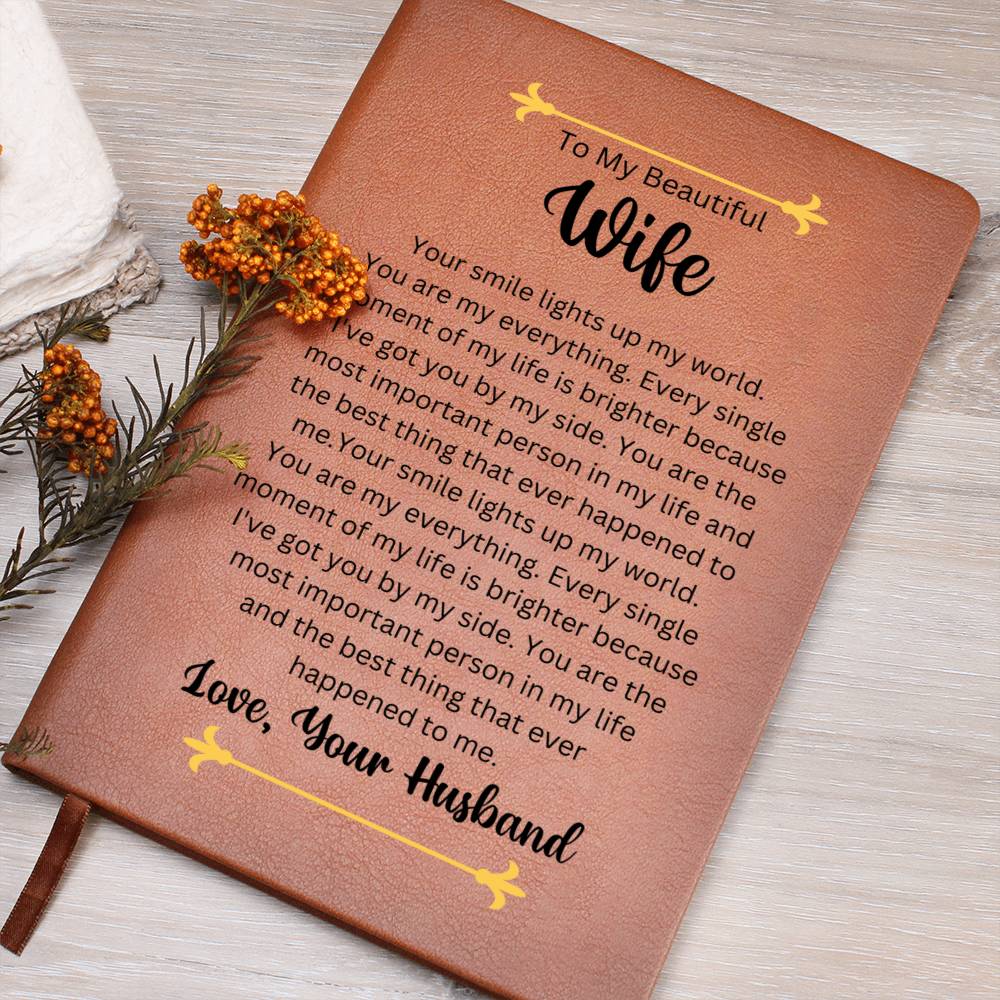 To My Beautiful
Wife
Your smile lights up my world.
You are my everything. Every single
oment of my life is brighter because
I've got you by my side. You are the
most important person in my life and
the best thing that ever happened to
me.Your smile lights up my world.
You are my everything. Every single
moment of my life is brighter because
I've got you by my side. You are the
most important person in my life
and the best thing that ever
happened to me.
Love, Your Husband